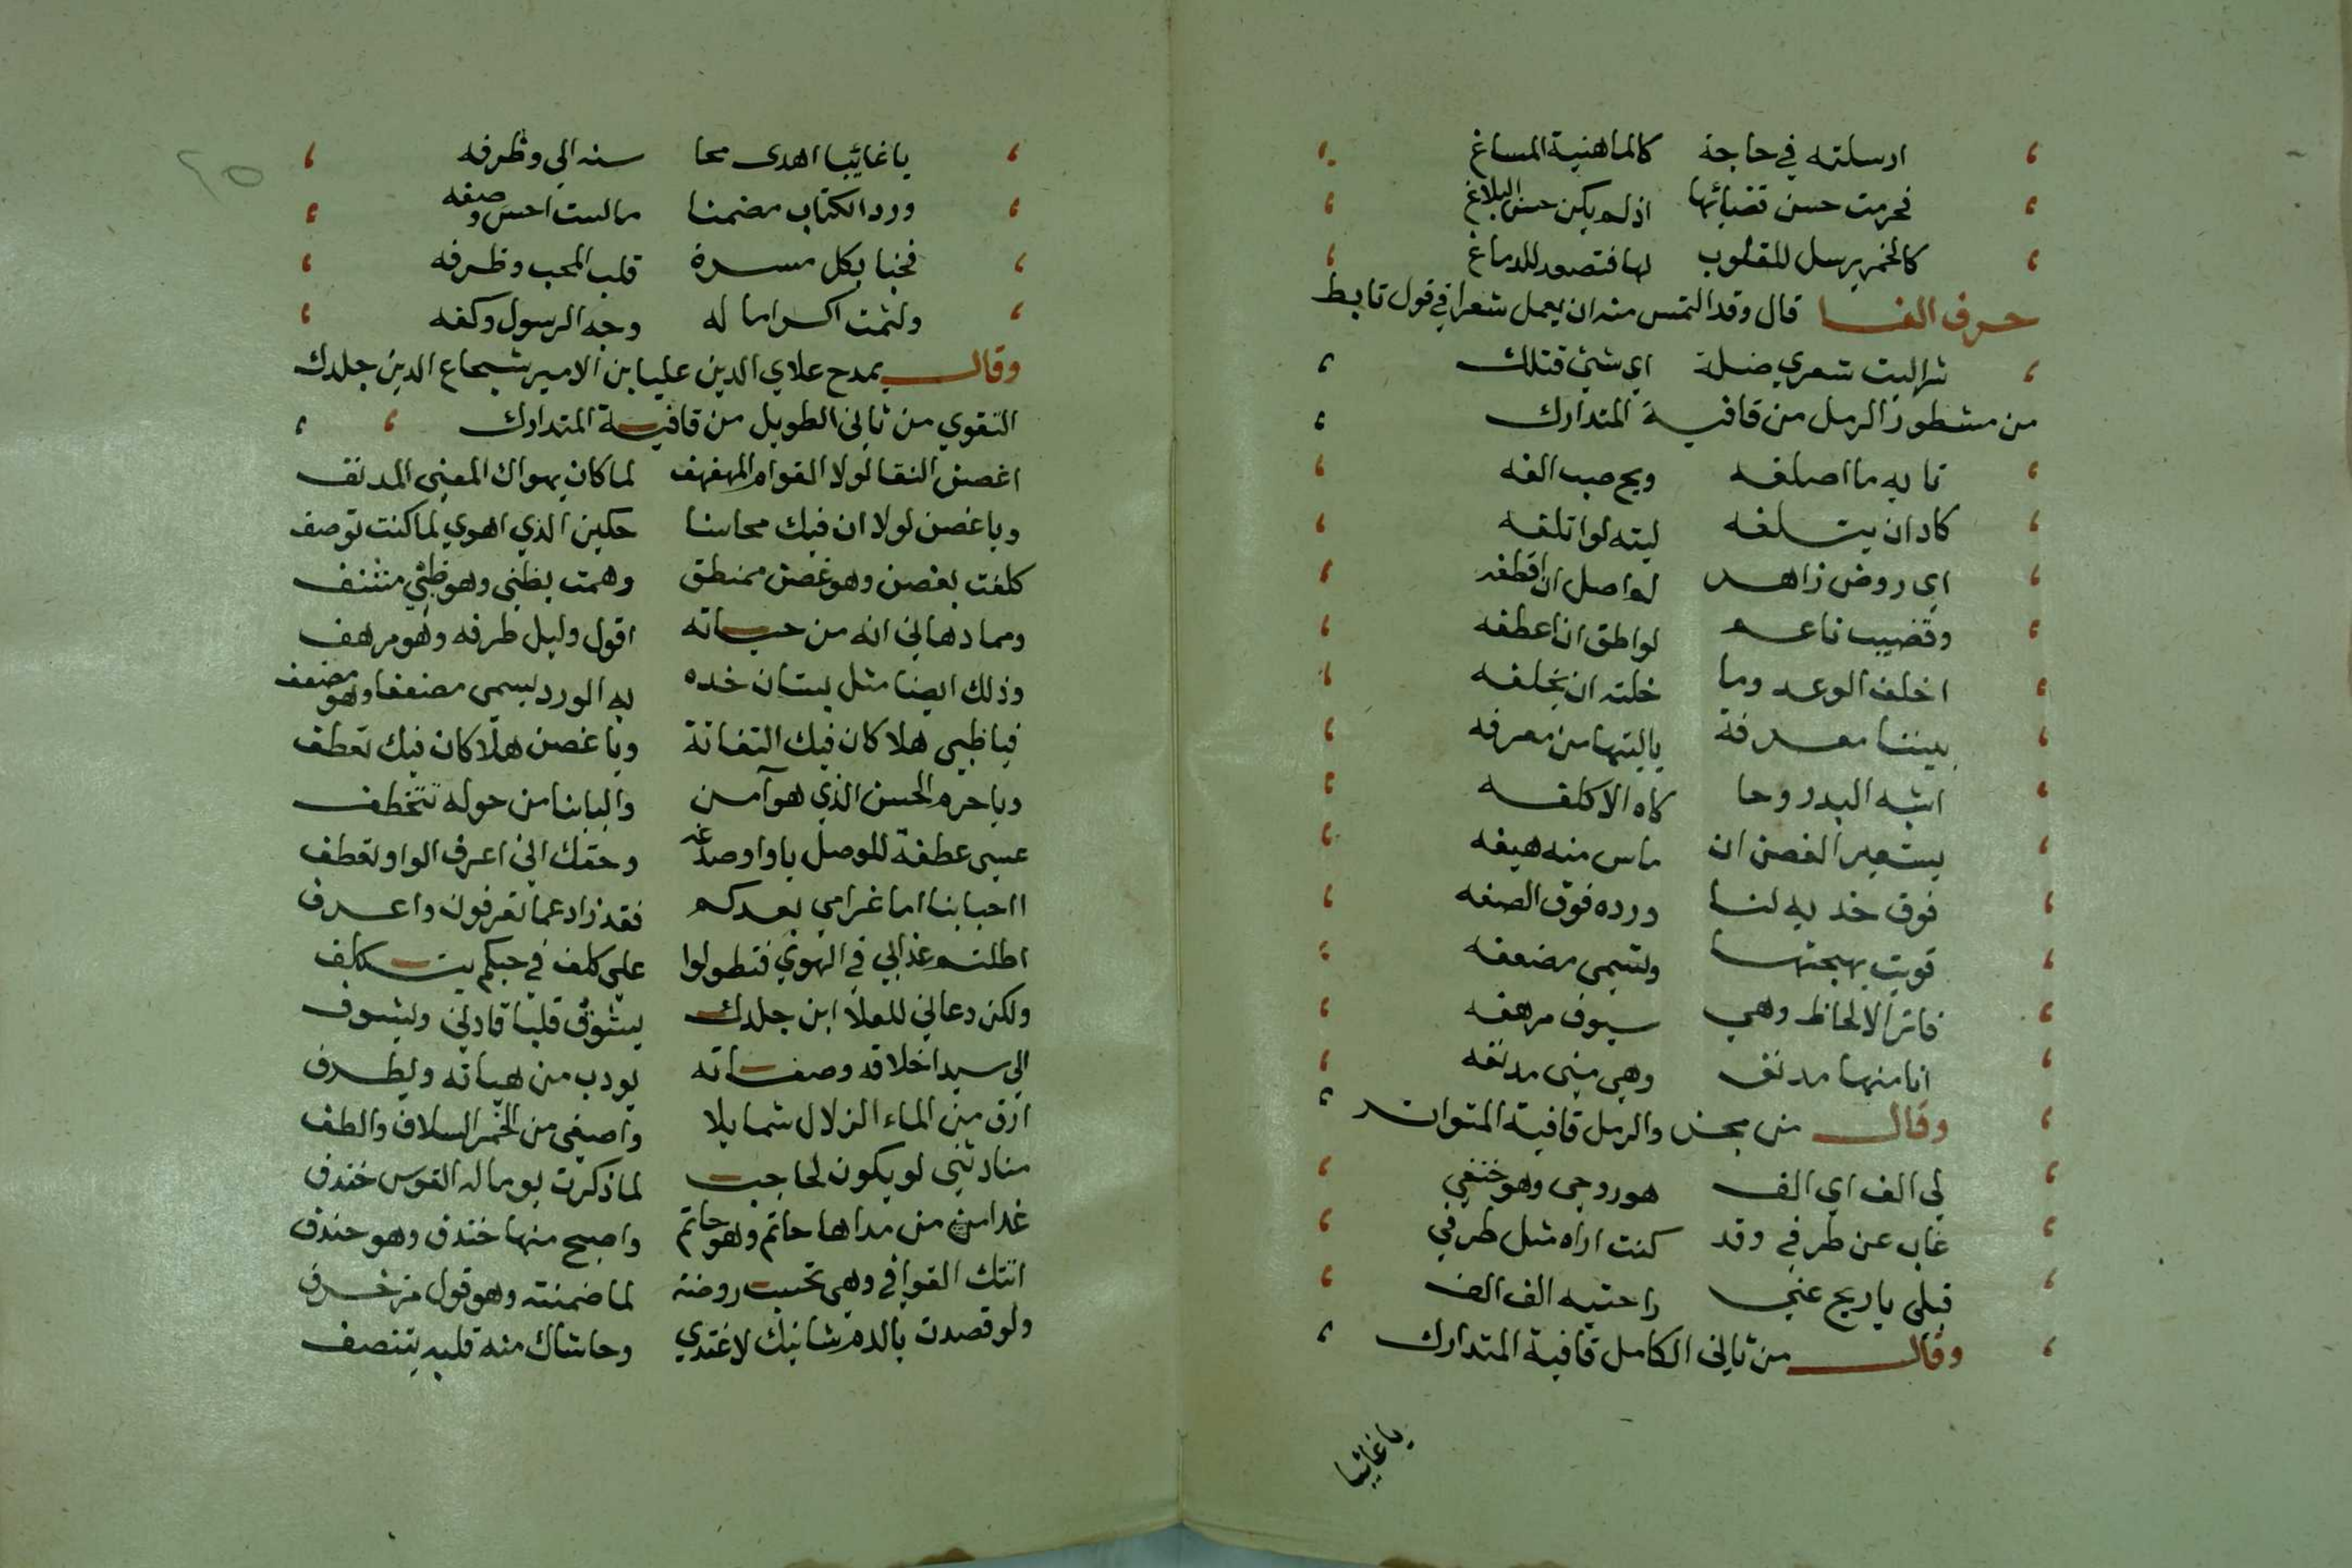 ارسلته في حاجة كالماهنية المساغ
فحرمت حسن قضائها اذ لم يكن حسن البلاغ
كالخمر يرسل للقلوب لها فتصعد للدماغ
حرف الفا قال وقد التمس منه ان يعمل شعرا في قول تابط
شرا ليت شعري ضلة اي شئ قتلك
من مشطور الرمل من قافية المتدارك
تا به ما اصلفه ويح صب الفه
كاد ان يتلفه ليته لو اتلفه
اي روض زاهر لو اصل ان اقطفه
وقضيب ناعم لو اطق ان اعطفه
اخلف الوعد وما خلته ان يخلفه
بيننا معرفة ياليتها من معرفه
اشبه البدر وحا كاه الا كلفه
يستعير الغصن ان ماس منه هيفه
فوق خديه لنا ورده فوق الصفه
قويت بهجتها وتسمى مضعفه
فاتر الالحاظ وهي سيوف مرهفه
انا منها مدنف وهي مني مدنفه
وقال من مجزو الرمل قافية المتواتر
لي الف اي الف هو روحي وهو حتفي
غاب عن طرفي وقد كنت اراه مثل طرفي
قبلي يا ريح عني راحتيه الف الف
وقال من ثاني الكامل قافية المتدارك
يا غائبا
يا غائبا اهدى محا سنه الي وظرفه
ورد الكتاب مضمنا ما لست احسن وصفه
فحبا بكل مسرة قلب المحب وظرفه
ولثمت اكراما له وجه الرسول وكفه
وقال يمدح علاي الدين عليا بن الامير شجاع الدين جلدك
التقوي من ثاني الطويل من قافية المتدارك
اغصن النقا لولا القوام المهفهف لما كان يهواك المعنى المدنف
ويا غصن لولا ان فيك محاسنا حكين الذي اهوي لما كنت توصف
كلفت بغصن وهو غصن ممنطق وهمت بظبي وهو ظبي مشنف
ومما دهاني انه من حياته اقول وليل طرفه وهو مرهف
وذلك ايضا مثل بستان خده به الورد يسمى مضعفا وهو مضعف
فيا ظبي هلا كان فيك التفاتة ويا غصن هلا كان فيك تعطف
ويا حرم الحسن الذي هو آمن والبابنا من حوله تتخطف
عسى عطفة للوصل يا واو صدغه وحقك اني اعرف الواو تعطف
ااحبابنا اما غرامي بعدكم فقد زاد عما تعرفون واعرف
اطلتم عذابي في الهوي فتطولوا على كلف في حبكم يتكلف
ولكن دعاني للعلا ابن جلدك يشوق قلبا قادني ويشوف
الي سيد اخلاقه وصفاته يودب من هياته ويطرف
ارق من الماء الزلال شمايلا واصفى من الخمر السلاف والطف
منادثنى لو يكون لحاجب لما ذكرت يوما له القوس خندف
غدا من مداها حاتم وهو حاتم واصبح منها خندف وهو خندف
اتتك القوافي وهي تحسب روضة لما ضمنته وهو قول مزخرف
ولو قصدت بالذم شانيك لاغتدي وحاشاك منه قلبه يتنصف